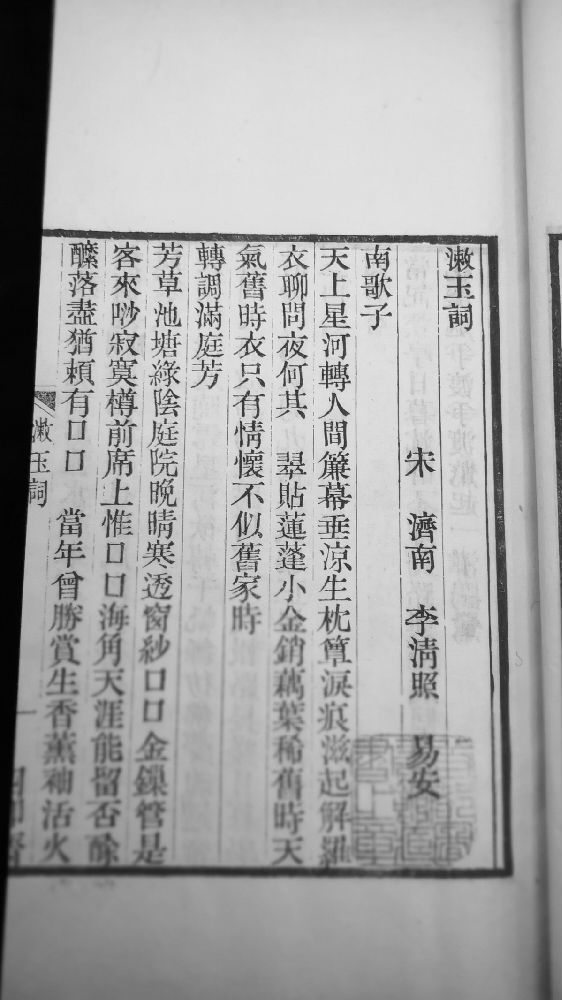 漱玉詞
宋 濟南 李淸照 易安
南歌子
天上星河轉人間簾幕垂涼生枕簟淚痕滋起解羅
衣聊問夜何其 翠貼蓮蓬小金銷藕葉稀舊時天
氣舊時衣只有情懷不似舊家時
轉調滿庭芳
芳草池塘綠陰庭院晚晴寒透窗紗口口金鏁管是
客來唦寂寞樽前席上惟口口海角天涯能留否酴
醿落盡猶賴有口口 當年曾勝賞生香薰袖活火
漱玉詞
一
四印齋